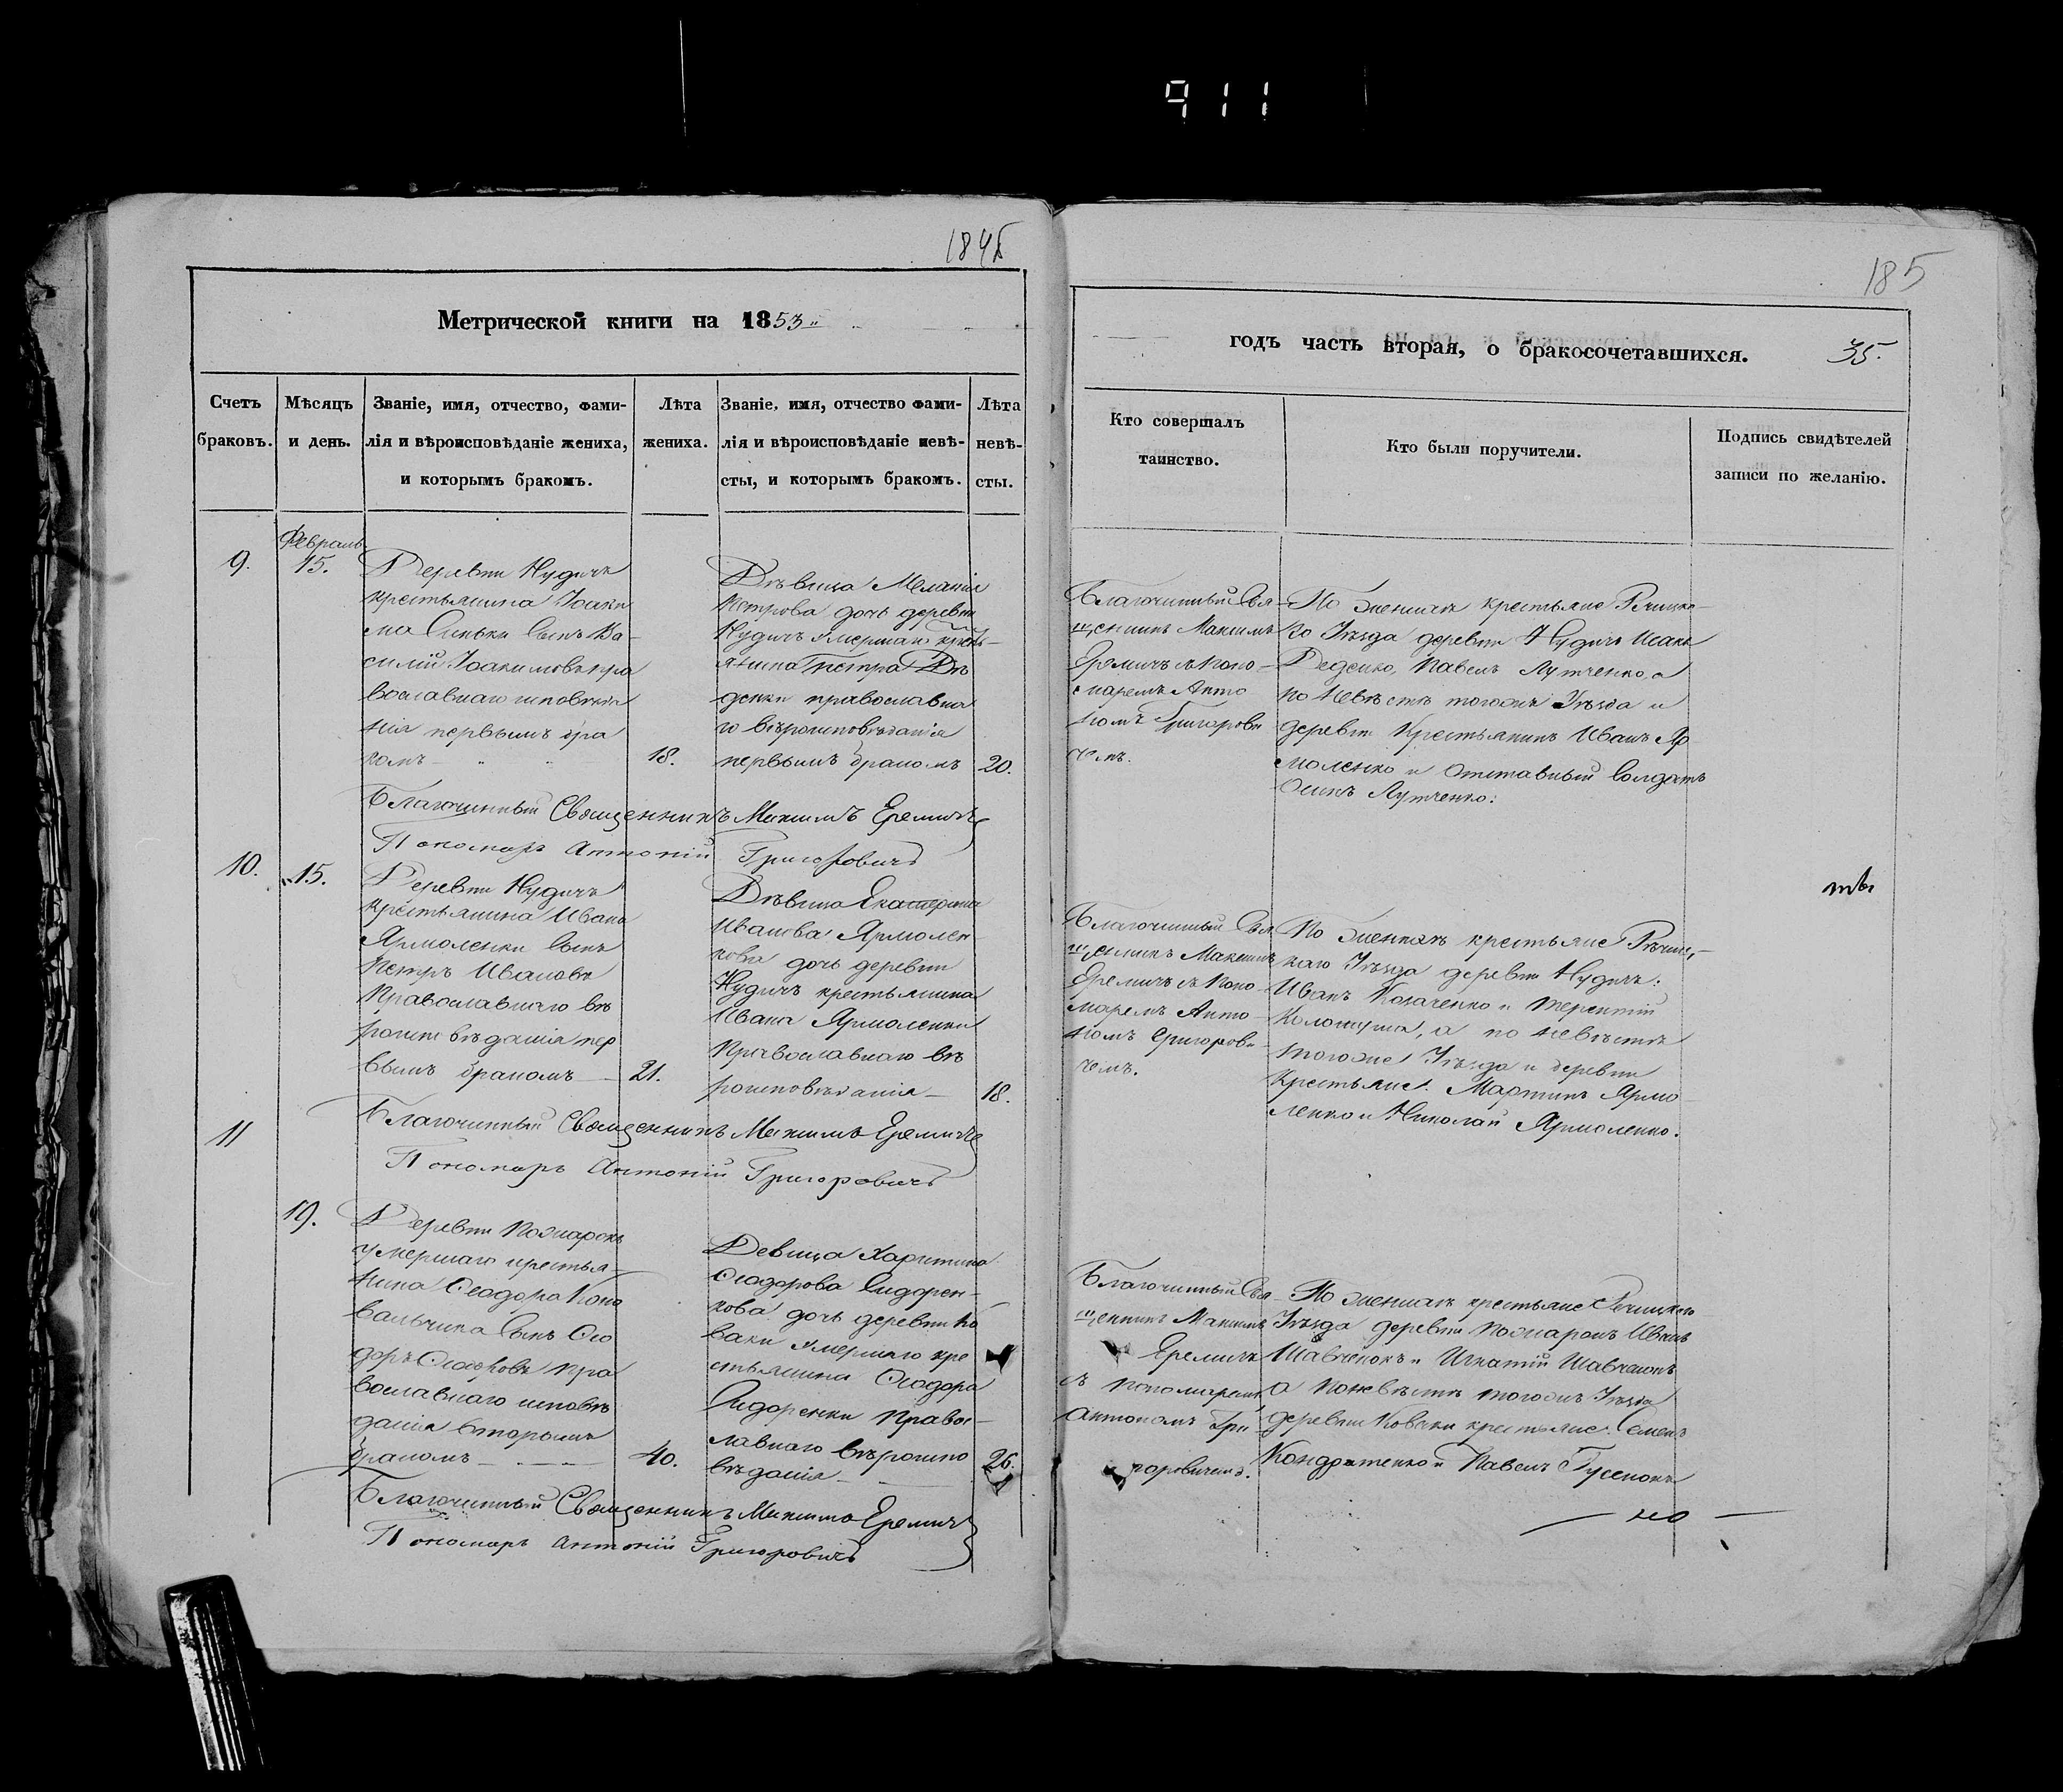 911
184
185
Метрической книги на 1853
годъ часть вторая, о бракосочетавшихся. 35.
Счетъ браковъ.
Мѣсяцъ и день.
Званіе, имя, отчество, фами-
лія и вѣроисповѣданіе жениха,
и которымъ бракомъ.
Лѣта
жениха.
Званіе, имя, отчество фами-
лія и вѣроисповѣданіе невѣ-
сты, и которымъ бракомъ.
Лѣта
невѣ-
сты.
Кто совершалъ
таинство.
Кто были поручители.
Подпись свидѣтелей
записи по желанію.
9.
Февраль
15.
Деревни Нудичъ
крестьянина Іоаки
ма Синьки сынъ Ва-
силій Іоакимовъ пра
вославнаго исповѣда
нія первымъ бра
комъ
18.
Дѣвица Меланія
Петрова дочь деревни
Нудичъ умершаго крень-
янина Петра Дѣ
денки православна
го вѣроисповѣданія
первымъ бракомъ
20.
Благочинный Свя-
щенникъ Максимъ
Еремичъ съ поно-
маремъ Анто
номъ Григорови
чемъ.
По женихѣ крестьяне Речицка-
го Уѣзда деревни Нудичъ Исакъ
Деденко, Павелъ Лутченко, а
по невѣстѣ тогожъ Уѣзда и
деревни Крестьянинъ Иванъ Яр
моленко и Отставный Солдатъ
Осипъ Лутченко:
Благочинный Священникъ Максимъ Еремичъ
Пономарь Антоній Григоровичъ
10.
15.
Деревни Нудичъ
крестьянина Ивана
Ярмоленки сынъ
Петръ Ивановъ
Православнаго вѣ
роисповѣданія пер
вымъ бракомъ
21.
Дѣвица Екатерина
Иванова Ярмолен
кова дочь деревни
Нудичъ крестьянина
Ивана Ярмоленки
Православнаго вѣ
роисповѣданія
18.
Благочинный Свя
щенникъ Максимъ
Еремичъ съ Поно-
маремъ Анто-
номъ Григорови-
чемъ.
По женихѣ крестьяне Рѣчиц-
каго Уѣзда деревни Нудичъ:
Иванъ Козаченко и Терентій
, а по невѣстѣ
тогоже Уѣзда и деревни
Крестьяне: Мартинъ Ярмо-
ленко и Николай Ярмоленко.
Благочинный Священникъ Максимъ Еремичъ
Пономарь Антоній Григоровичъ
11
19.
Деревни Пожарокъ
умершаго крестья-
нина Ѳеодора Кова
вальчика сынъ Ѳео
доръ Ѳеодоровъ пра
вославнаго исповѣ
данія вторымъ
бракомъ
40.
Девица Харитина
Ѳеодорова Сидорен-
кова дочь деревни Ко
ваки умершаго кре
стьянина Ѳеодора
Сидоренки Правос-
лавнаго вѣроиспо
вѣданія
26.
Благочинный Свя-
щенникъ Максимъ
Еремичъ
съ пономаремъ
Антономъ Гри
горовичемъ.
По женихѣ крестьяне Речицкаго
Уѣзда деревни Пожарокъ Иванъ
Шавченокъ и Игнатій Шавченокъ
а по невѣстѣ тогожъ Уѣзда
деревни Коваки крестьяне: Семенъ
Кондратенко и Павелъ Гусенокъ
Благочинный Священникъ Максимъ Еремичъ
Пономарь Антоній Григоровичъ